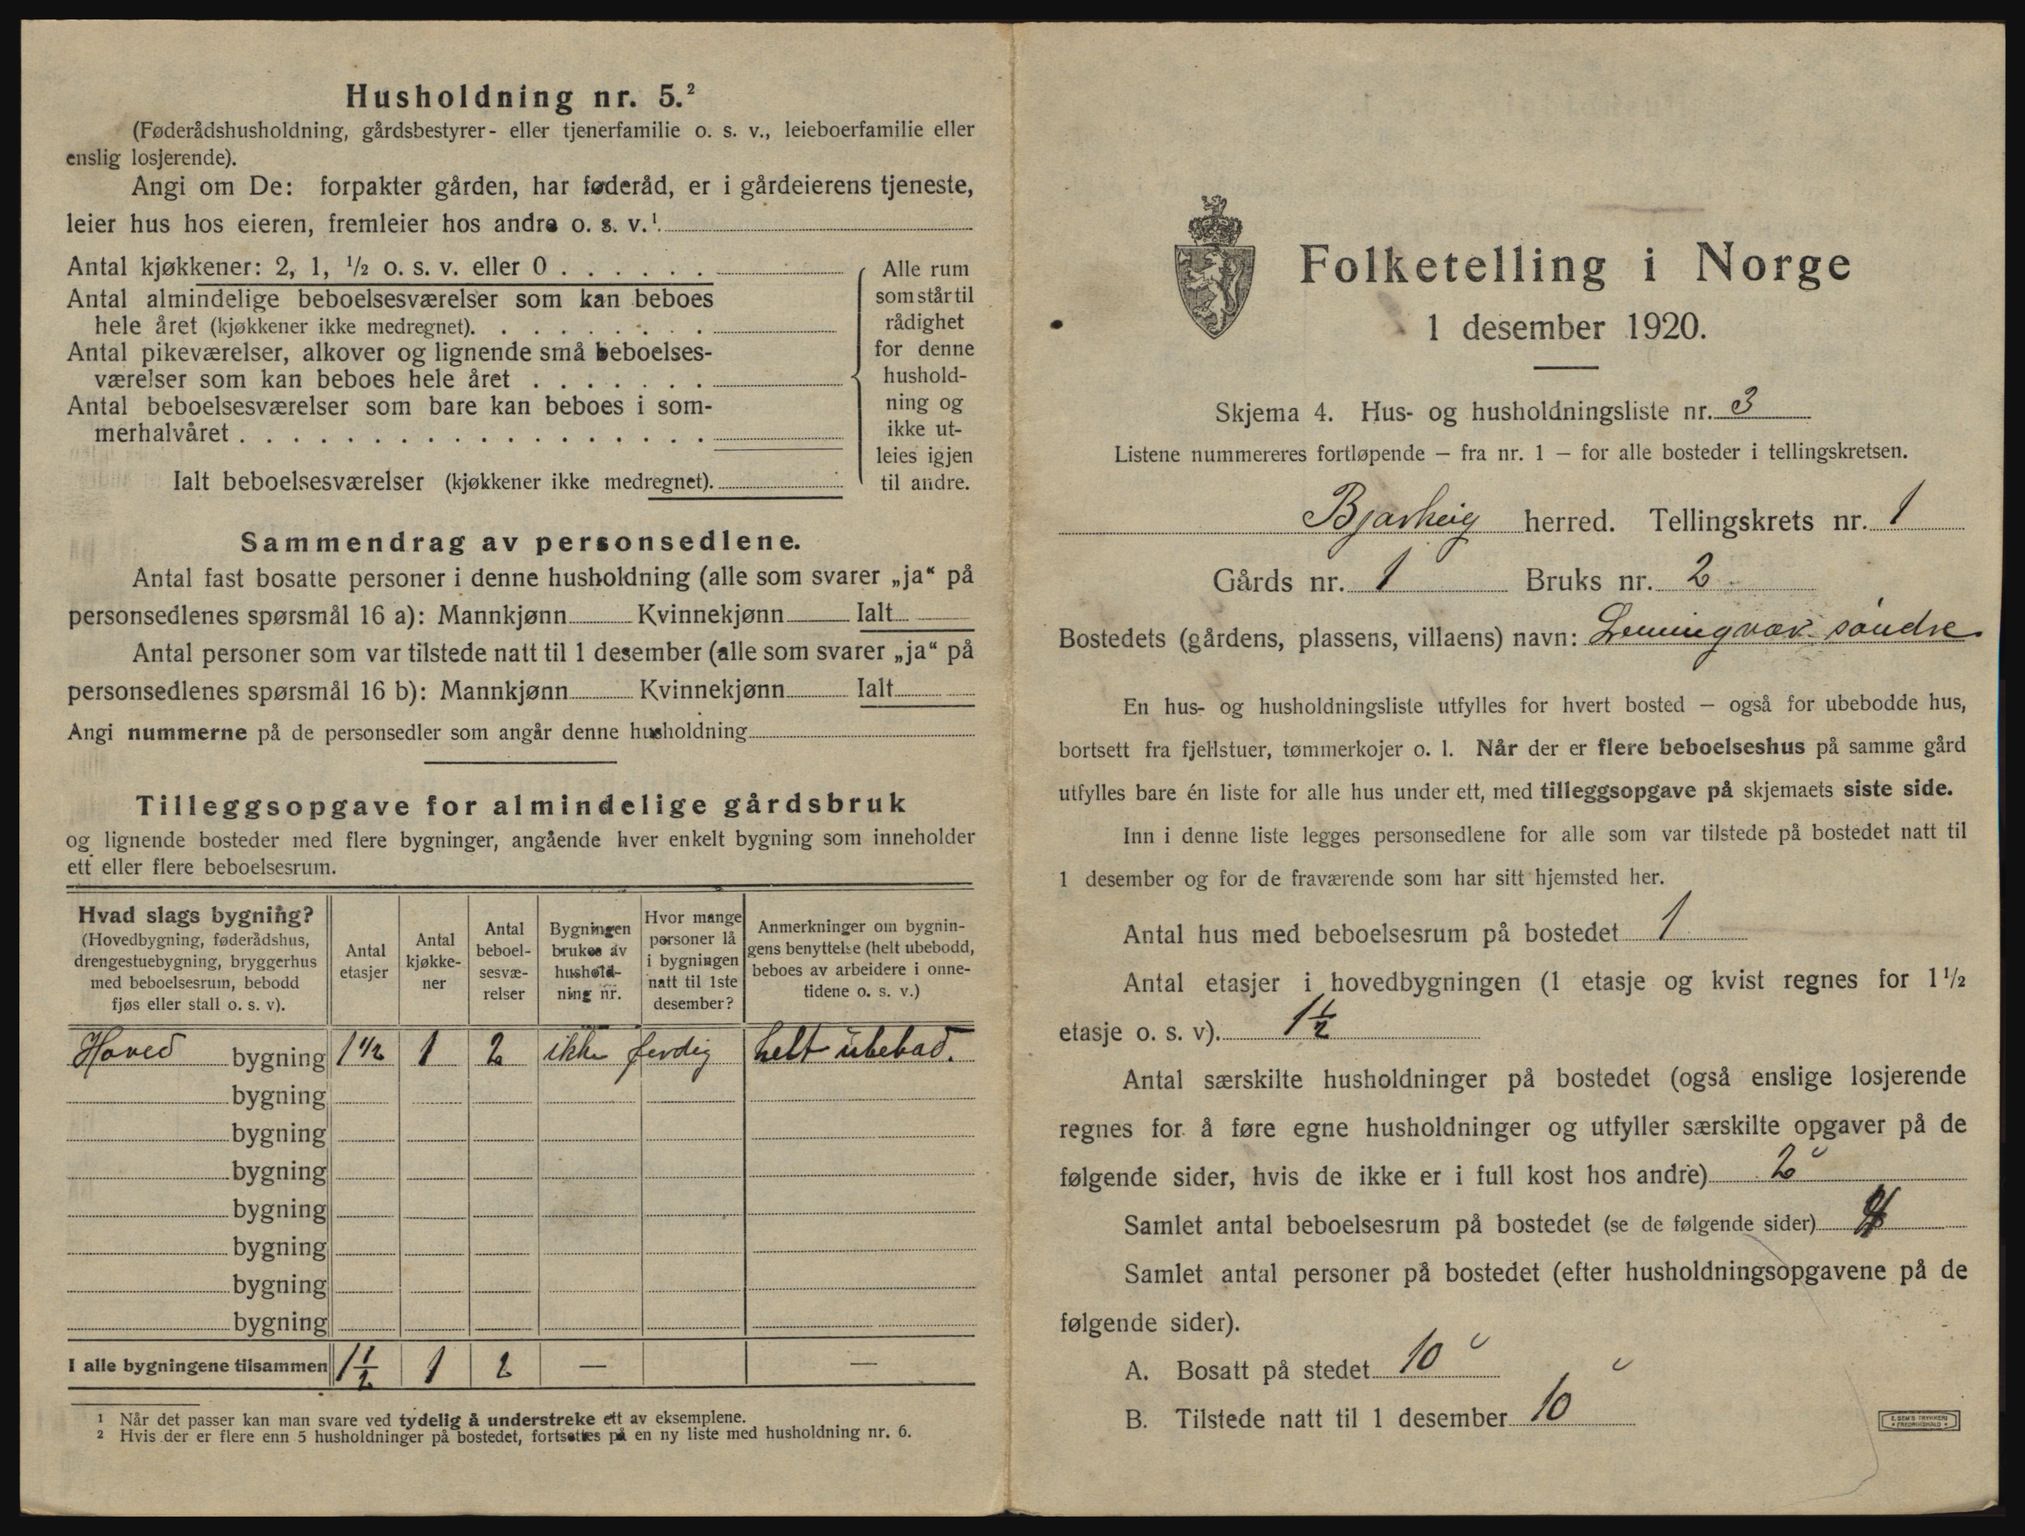 Husholdning nr. 5.²
(Føderådshusholdning, gårdsbestyrer- eller tjenerfamilie o. s. v., leieboerfamilie eller
enslig losjerende).
Angi om De: forpakter gården, har føderåd, er i gårdeierens tjeneste,
leier hus hos eieren, fremleier hos andre o. s. v.¹
Antal kjøkkener: 2, 1, ½ o. s. v. eller 0
Antal almindelige beboelsesværelser som kan beboes
hele året (kjøkkener ikke medregnet).
Antal pikeværelser, alkover og lignende små beboelses-
værelser som kan beboes hele året
Antal beboelsesværelser som bare kan beboes i som-
merhalvåret
Ialt beboelsesværelser (kjøkkener ikke medregnet).
Alle rum
som står til
rådighet
for denne
hushold-
ning og
ikke ut-
leies igjen
til andre.
Sammendrag av personsedlene.
Antal fast bosatte personer i denne husholdning (alle som svarer „ja“ på
personsedlenes spørsmål 16 a): Mannkjønn Kvinnekjønn Ialt
Antal personer som var tilstede natt til 1 desember (alle som svarer „ja“ på
personsedlenes spørsmål 16 b): Mannkjønn Kvinnekjønn Ialt
Angi nummerne på de personsedler som angår denne husholdning
Tilleggsopgave for almindelige gårdsbruk
og lignende bosteder med flere bygninger, angående hver enkelt bygning som inneholder
ett eller flere beboelsesrum.
Hvad slags bygning?
(Hovedbygning, føderådshus,
drengestuebygning, bryggerhus
med beboelsesrum, bebodd
fjøs eller stall o. s. v).
Antal
etasjer
Antal
kjøkke-
ner
Antal
beboel-
sesvæ-
relser
Bygningen
brukes av
hushold-
ning nr.
Hvor mange
personer lå
i bygningen
natt til 1ste
desember?
Anmerkninger om bygnin-
gens benyttelse (helt ubebodd,
beboes av arbeidere i onne-
tidene o. s. v.)
Hoved bygning 1 ½ 1 2 ikke ferdig helt ubebod.
bygning
bygning
bygning
bygning
bygning
bygning
bygning
I alle bygningene tilsammen 1½ 1 2 — —
¹ Når det passer kan man svare ved tydelig å understreke ett av eksemplene.
² Hvis der er flere enn 5 husholdninger på bostedet, fortsettes på en ny liste med husholdning nr. 6.
Folketelling i Norge
1 desember 1920.
Skjema 4. Hus- og husholdningsliste nr. 3
Listene nummereres fortløpende – fra nr. 1 – for alle bosteder i tellingskretsen.
Bjarkøy herred. Tellingskrets nr. 1
Gårds nr. 1 Bruks nr. 2
Bostedets (gårdens, plassens, villaens) navn: Lemmingvær søndre
En hus- og husholdningsliste utfylles for hvert bosted – også for ubebodde hus,
bortsett fra fjellstuer, tømmerkojer o. l. Når der er flere beboelseshus på samme gård
utfylles bare én liste for alle hus under ett, med tilleggsopgave på skjemaets siste side.
Inn i denne liste legges personsedlene for alle som var tilstede på bostedet natt til
1 desember og for de fraværende som har sitt hjemsted her.
Antal hus med beboelsesrum på bostedet 1
Antal etasjer i hovedbygningen (1 etasje og kvist regnes for 1 ½
etasje o. s. v). 1½
Antal særskilte husholdninger på bostedet (også enslige losjerende
regnes for å føre egne husholdninger og utfyller særskilte opgaver på de
følgende sider, hvis de ikke er i full kost hos andre) 2
Samlet antal beboelsesrum på bostedet (se de følgende sider)
Samlet antal personer på bostedet (efter husholdningsopgavene på de
følgende sider).
A. Bosatt på stedet 10
B. Tilstede natt til 1 desember 10
E. SEM'S TRYKKERI
FREDRIKSHALD